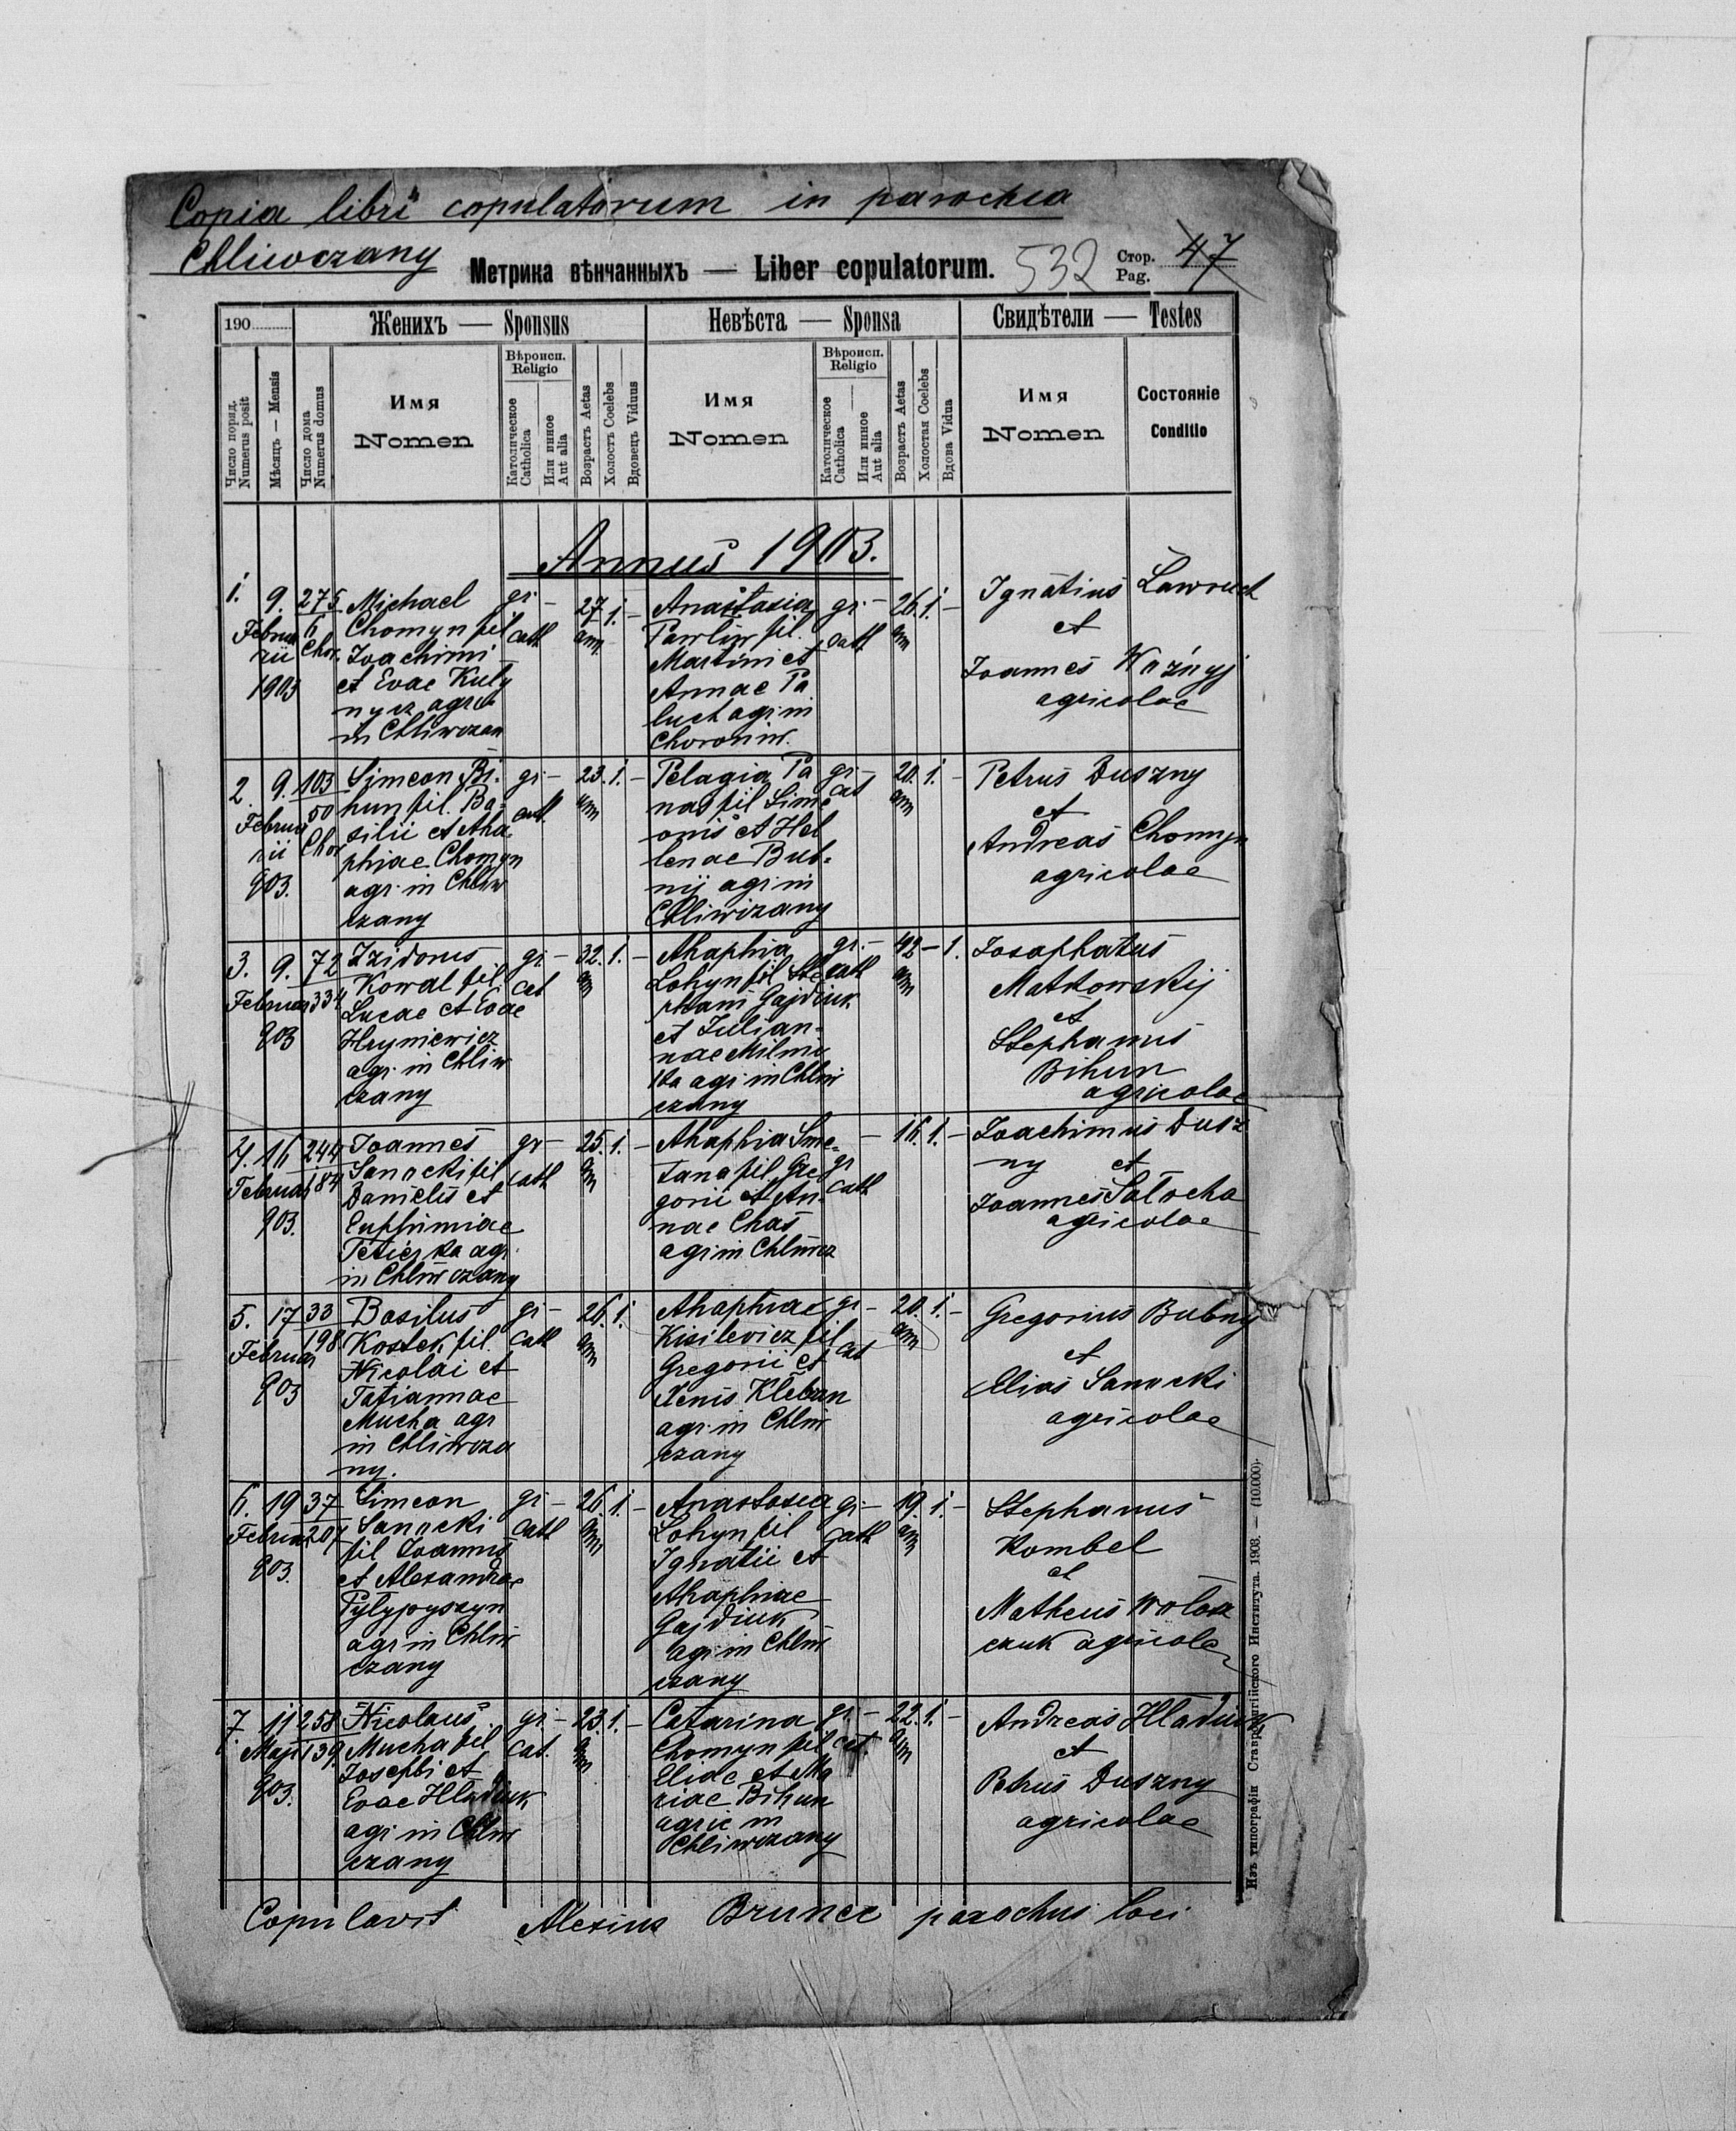 Copia libri copulatorum in parochia
Chliwczany
Метрика вѣнчанныхъ — Liber copulatorum.
532
Стор. Pag. 47
190
Женихъ — Sponsus
Невѣста — Sponsa
Свидѣтели — Testes
Число поряд. Numerus posit
Мѣсяцъ — Mensis
Число дома Numerus domus
Имя Nomen
Вѣроисп. Religio
Католическое Catholica
Или инное Aut alia
Возрастъ Aetas
Холостъ Coelebs
Вдовецъ Viduus
Имя Nomen
Вѣроисп. Religio
Католическое Catholica
Или инное Aut alia
Возрастъ Aetas
Холостая Coelebs
Вдова Vidua
Имя Nomen
Состояніе Conditio
Annus 1903.
1.
9.
Februarii
1903
275
6
Chor.
Michael
Chomyn fil
Joachimi
et Evae Kuly
nycz agri
in Chliwczan
gr. cath
27 ann
1.
Anastasia
Pawliw fil.
Martini et
Annae Pa
luch agr in
Choroniw.
gr. cath
26 ann
1.
Ignatius Lawruch
et
Joannes Ważnyj
agricolae
2.
9.
Februarii
903.
103
50
Chor
Simeon Bi.
hun fil. Ba-
silii et Aha
phiae Chomyn
agr. in Chliw
czany
gr. cath.
23. ann
1.
Pelagia Pa
nas fil Sime
onis et Hel
lenae Bub-
nij agr in
Chliwczany
gr. cat
20. ann
1.
Petrus Duszny
et
Andreas Chomyn
agricolae
3.
9.
Februar
903
72
334
Izidorus
Kowal fil
Lucae et Evae
Hryniewicz
agr. in Chliw
czany
gr. cat
32. ann
1.
Ahaphia
Lohyn fil Ste
phani Gajdiuk
et Julian-
nae
agr. in Chliw
czany
gr. cath
42 ann
1.
Josaphatus
Matkowskij
et
Stephanus
Bihun
agricolae
4.
16
Februar
903.
244
184
Joannes
Sanocki fil
Danielis et
Euphimiae
agr.
in Chliwczany
gr cath
25. ann
1.
Ahaphia Sme-
tana fil Gre
gorii et An-
nae Chas
agr in Chliwcz
gr cath
16.
1.
Joachimus Dusz
ny et
Joannes Salocha
agricolae
5.
17
Februar
903
33
198
Basilus
Kostek fil.
Nicolai et
Tatiannae
Mucha agr
in Chliwcza
ny.
gr cath
26. ann
1.
Ahaphiae
Kisilevicz fil
Gregorii et
Xenis Kleban
agr. in Chliw
czany
gr cat
20. ann
1.
Gregorius Bubnyj
et
Elias Sanocki
agricolae
6.
19
Februar
903.
37
207
Simeon
Sanocki
fil Joannis
et Alexandrae
Pylypyszyn
agr in Chliw
czany
gr cath
26. ann
1.
Anastasia
Lohyn fil
Ignatii et
Ahaphiae
Gajdiuk
agr in Chliw
czany
gr. cath
19. ann
1.
Stephanus
Kombel
et
Matheus Wolosz
czuk agricolae
7.
11
Maji
903.
258
139.
Nicolaus
Mucha fil
Josephi et
Evae Hladiuk
agr in Chliw
czany
gr. cat.
23. ann
1.
Catarina
Chomyn fil
Eliae et Ma
riae Bihun
agric in
Chliwczany
gr. cat.
22. ann
1.
Andreas Hladiuk
et
Petrus Duszny
agricolae
Copulavit Alexius parochus loci
Изъ типографіи Ставропигійского Института. 1903. — (10.000).